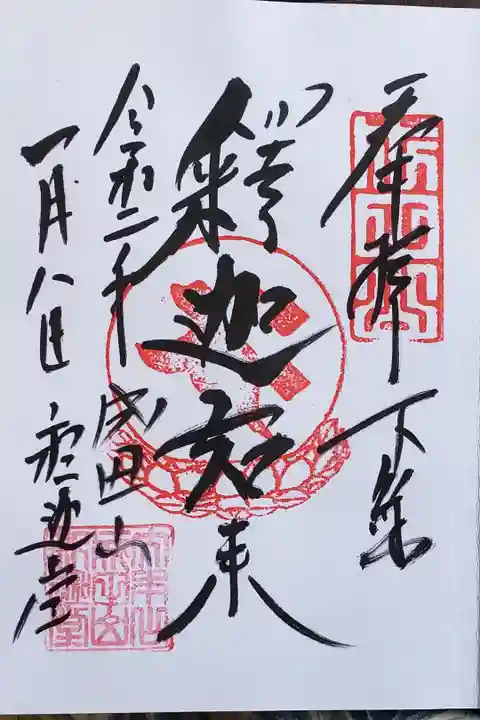 奉拝 下総
釋迦如来
令和二年 成田山
一月八日 釈迦堂